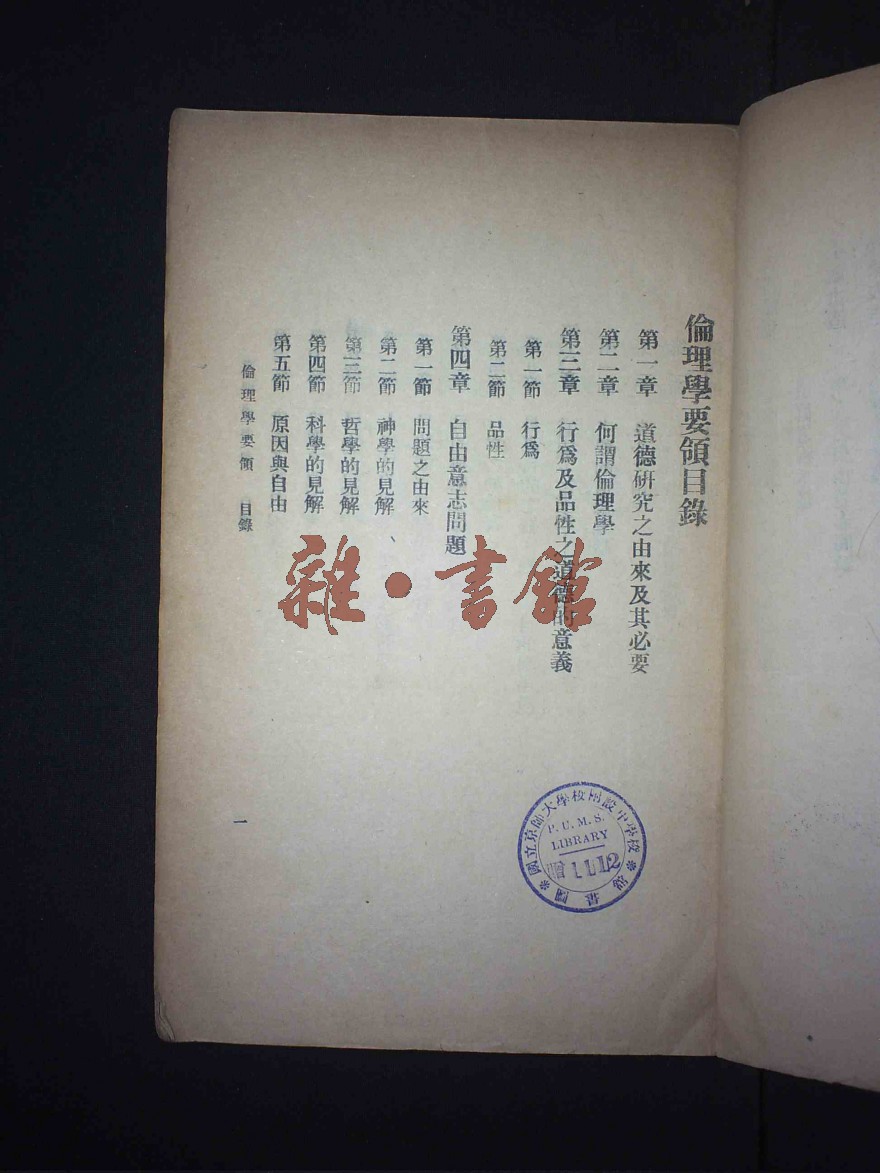 倫理學要領目錄
第一章　道德硏究之由來及其必要
第二章　何謂倫理學
第三章　行爲及品性之道德的意義
第一節　行爲
第二節　品性
第四章　自由意志問題
第一節　問題之由來
第二節　神學的見解
第三節　哲學的見解
第四節　科學的見解
第五節　原因與自由
倫理學要領　目錄
一
雜·書館
國立京師大學校附設中學校
P. U. M. S.
LIBRARY
1112